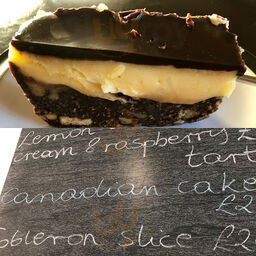 Lemon
cream & raspberry £
tart
Canadian cake
£2
obleron slice £2